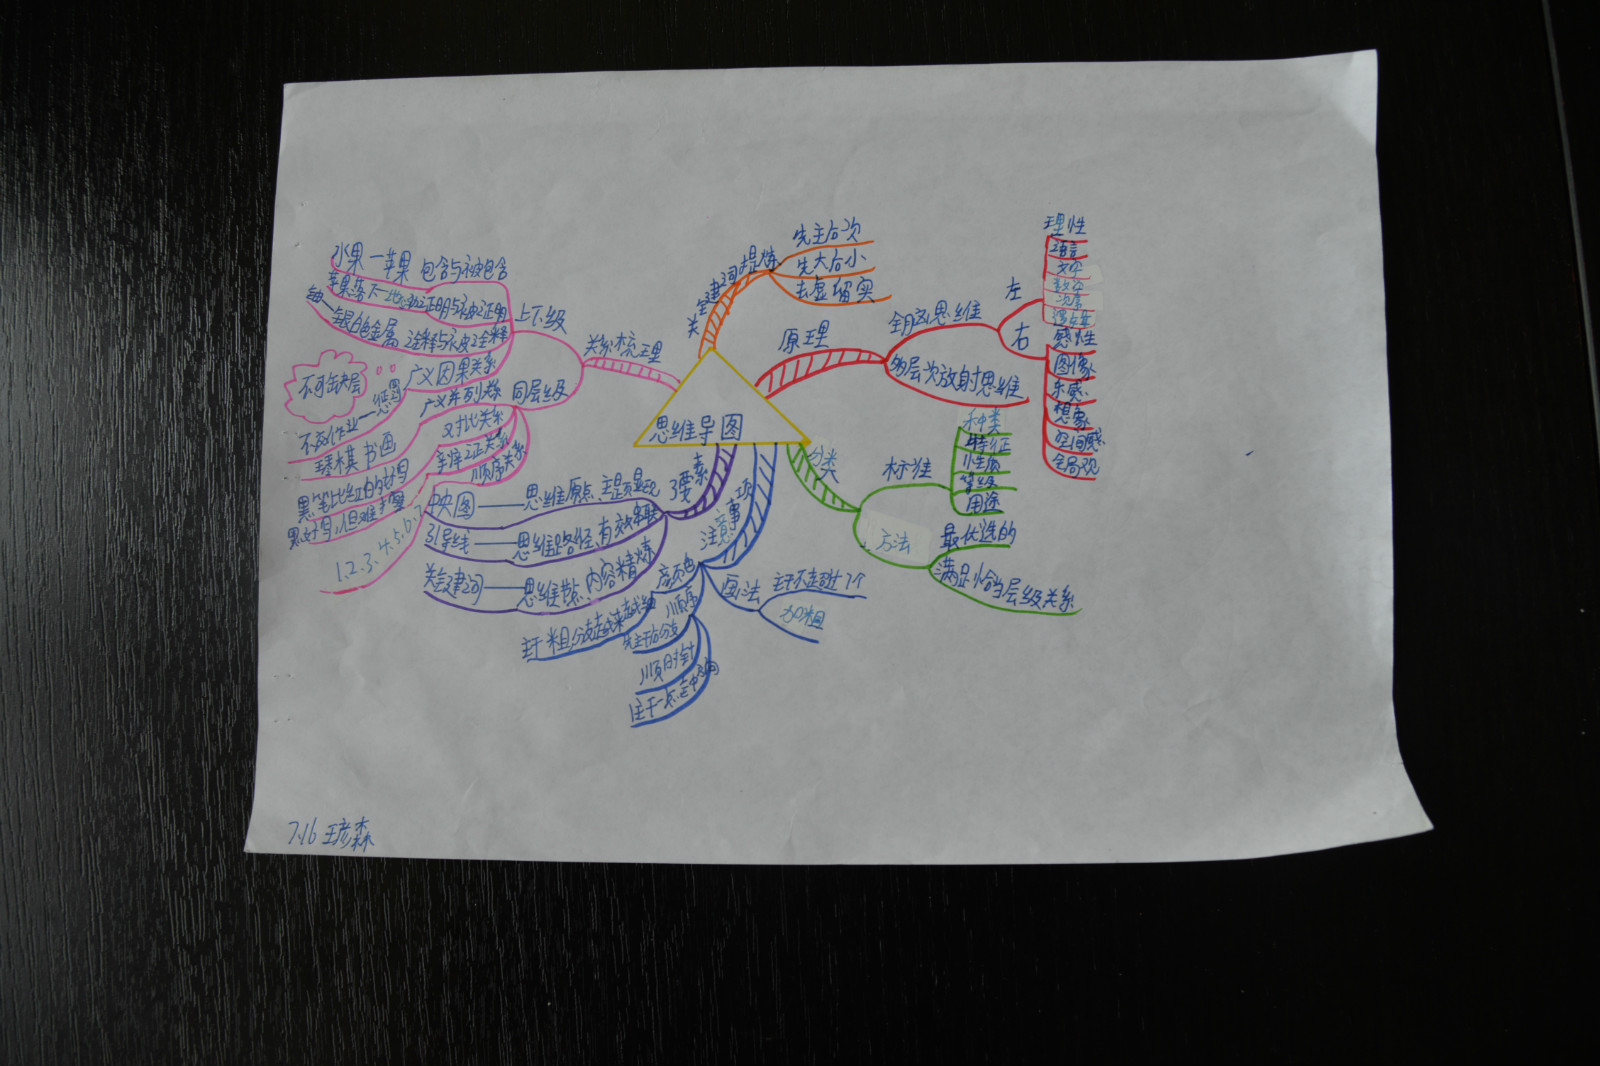 思维导图
关键词提炼
先主后次
先大后小
去虚留实
原理
全脑思维
左
理性
语言
文字
数字
次序
右
感性
图像
乐感
想象
空间感
全局观
多层次放射思维
分类
标准
种类
特征
性质
等级
用途
方法
最优选的
满足恰当层级关系
注意事项
画法
主干不超过7个
加粗
顺序
先主干后分支
顺时针
颜色
主干粗分支越来越细
3要素
中央图——思维原点、主题显现
引导线——思维路径、有效串联
关键词——思维节点、内容精炼
关系梳理
上下级
水果—苹果 包含与被包含
苹果落下—地心 证明与被证明
银白色金属 诠释与被诠释
广义因果关系
不交作业—惩罚
不可缺局
同层级
广义并列关系
琴棋书画
对比关系
黑笔比红的好写
辛辣证正关系
黑好写,但难擦
顺序关系
1.2.3.4.5.6.7
7.16 王彦森